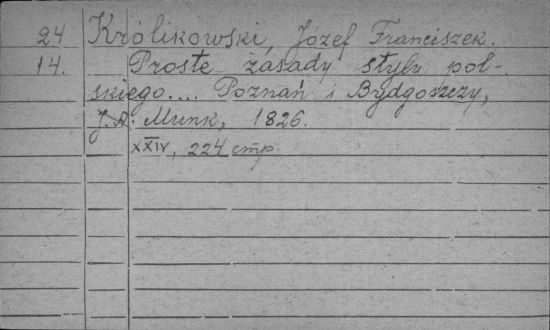 24 Królikowski, Józef Franciszek.
14. Proste zasady stylu pol-
skiego.... Poznań i Bydgoszczy,
J. A. Munk, 1826.
XXIV, 224 стр.